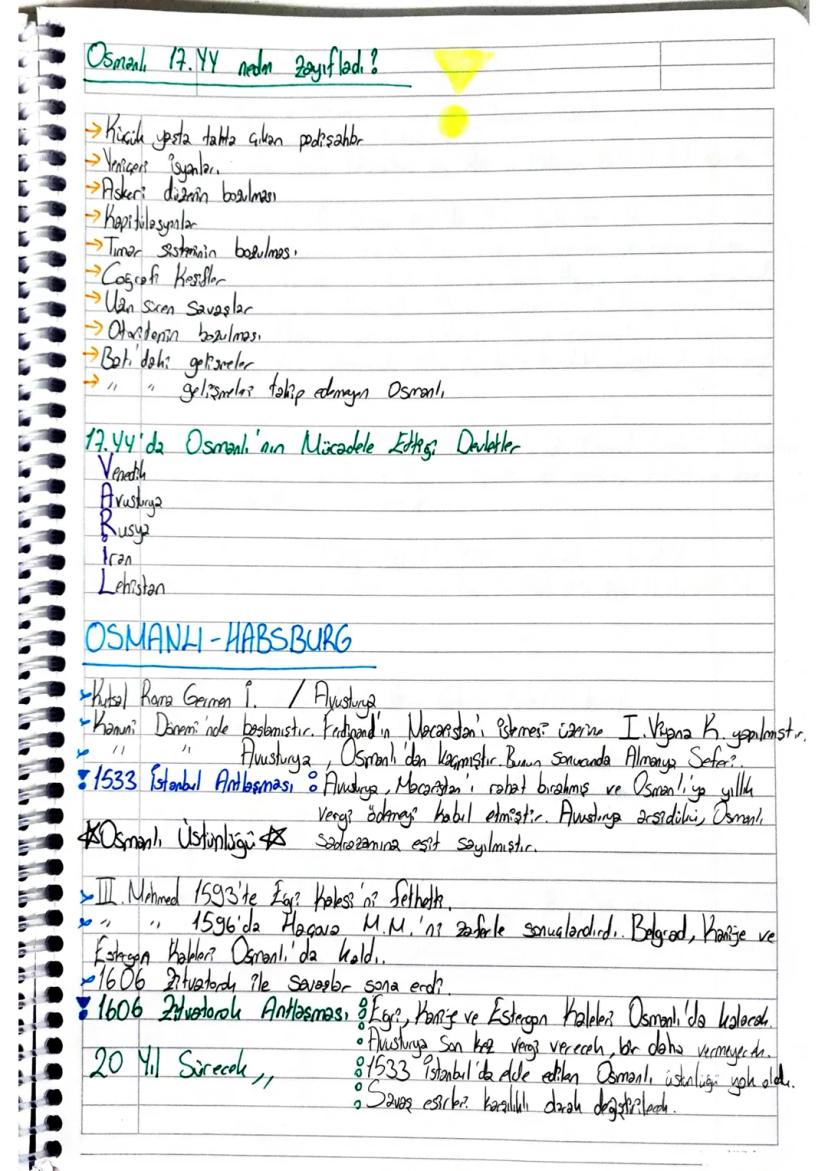 Osmanlı 17.YY neden zayıfladı?
→ Küçük yaşta tahta çıkan padişahlar
→ Yeniçeri isyanları
→ Askeri düzenin bozulması
→ Kapitülasyonlar
→ Tımar sisteminin bozulması
→ Coğrafi Keşifler
→ Uzun süren savaşlar
→ Otoritenin bozulması
→ Batı'daki gelişmeler
→ " " gelişmeleri takip edemeyen Osmanlı
17.YY'da Osmanlı'nın Mücadele Ettiği Devletler
Venedik
Avusturya
Rusya
İran
Lehistan
OSMANLI-HABSBURG
Kutsal Roma Germen İ. / Avusturya
Kanuni Dönemi'nde başlamıştır. Ferdinand'ın Macaristan'ı istemesi üzerine I. Viyana K. yapılmıştır.
" " Avusturya, Osmanlı'dan kaçmıştır. Bunun sonucunda Almanya Seferi.
1533 İstanbul Antlaşması: Avusturya, Macaristan'ı rahat bırakmış ve Osmanlı'ya yıllık
vergi ödemeyi kabul etmiştir. Avusturya arşidükü, Osmanlı
☆Osmanlı Üstünlüğü☆ sadrazamına eşit sayılmıştır.
III. Mehmed 1593'te Eğri Kalesi'ni fethetti.
" " 1596'da Haçova M.M.'nı zaferle sonuçlandırdı. Belgrad, Kanije ve
Estergon Kaleleri Osmanlı'da kaldı.
1606 Zitvatorok ile savaşlar sona erdi.
1606 Zitvatorok Antlaşması: Eğri, Kanije ve Estergon Kaleleri Osmanlı'da kalacak.
Avusturya son kez vergi verecek, bir daha vermeyecek.
20 Yıl Sürecek,, 1533 İstanbul'da elde edilen Osmanlı üstünlüğü yok oldu.
Savaş esirleri karşılıklı olarak değiştirilecek.